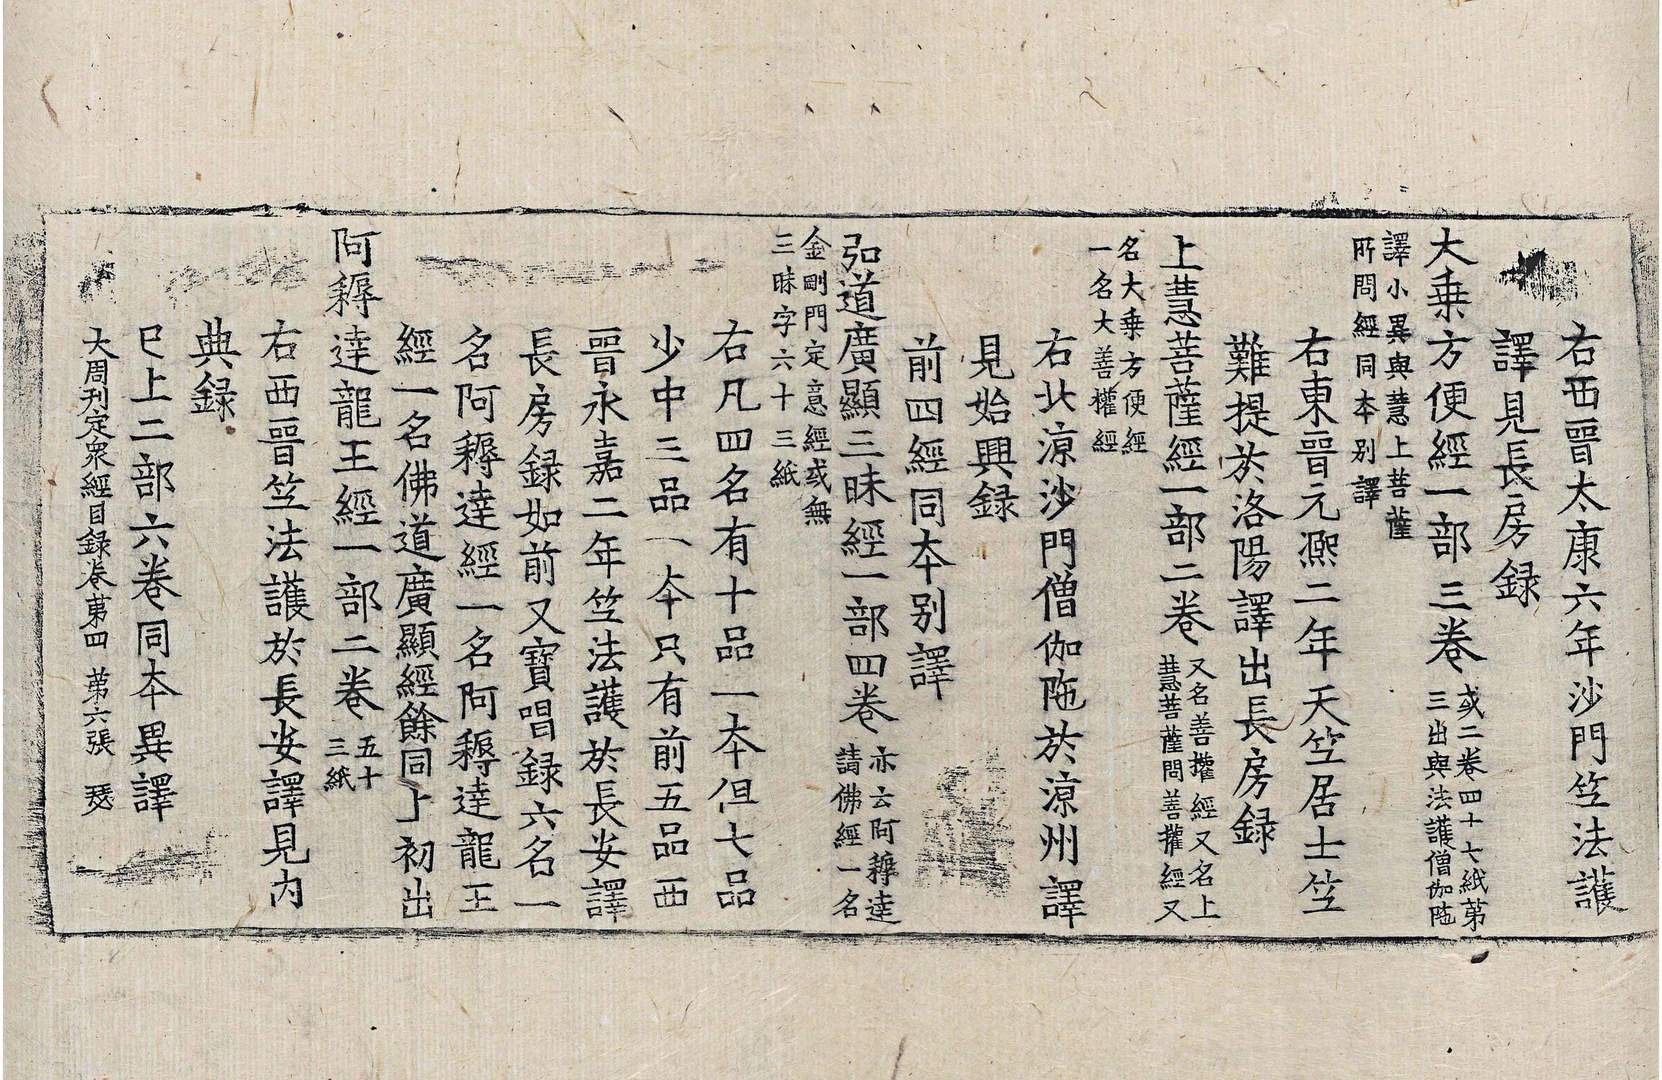 右西晋太康六年沙門笁法護
譯見長房録
大乗方便經一部三卷
或二卷四十七紙第
三出與法護僧伽陁
譯小異與慧上菩薩
所問經同夲别譯
右東晋元凞二年天笁居士笁
難提於洛陽譯出長房録
上慧菩薩經一部二卷
又名善攉經又名上
慧菩薩問善攉經又
名大乗方便經
一名大善權經
右北涼沙門僧伽陁於涼州譯
見始興録
前四經同夲别譯
弘道廣顯三昧經一部四卷
亦云阿耨達
請佛經一名
金剛門定意經或無
三昧字六十三紙
右凡四名有十品一夲但七品
少中三品一夲只有前五品西
晋永嘉二年笁法護於長安譯
長房録如前又寶唱録六名一
名阿耨達經一名阿耨達龍王
經一名佛道廣顯經餘同上初出
阿耨達龍王經一部二卷
五十
三紙
右西晋笁法護於長安譯見内
典録
巳上二部六卷同夲異譯
大周刊定衆經目録卷第四 第六張 瑟